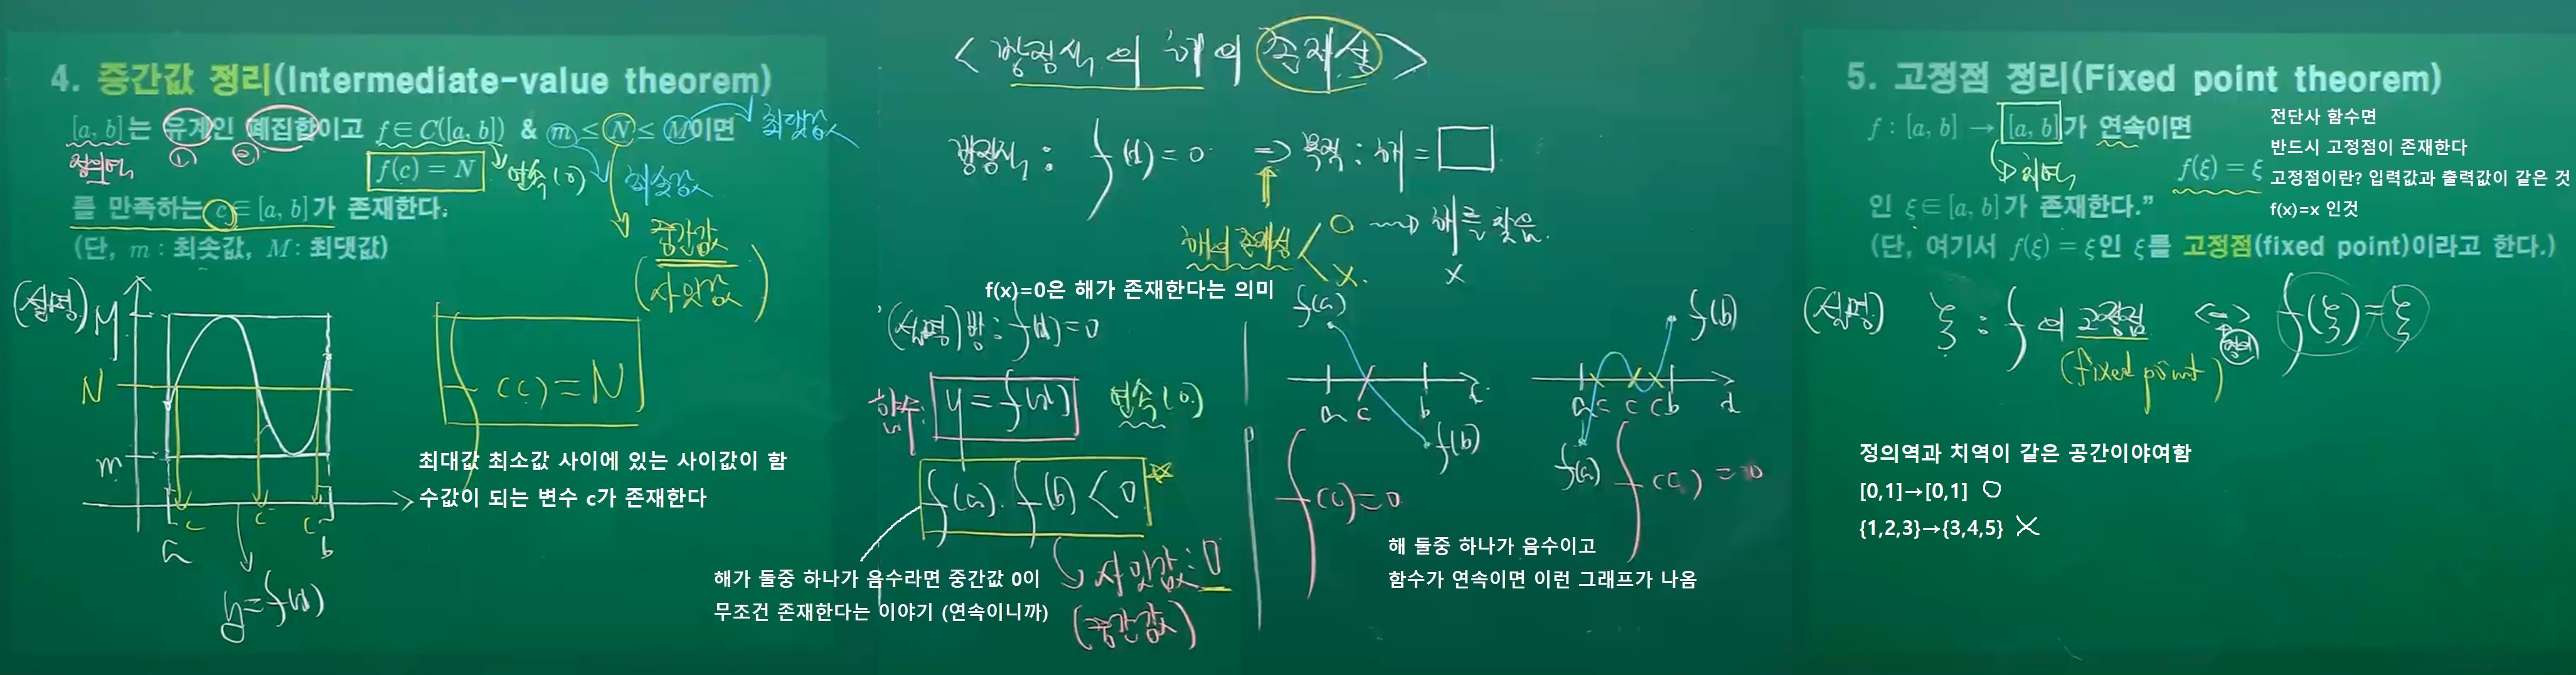 4. 중간값 정리(Intermediate-value theorem)
[a, b]는 유계인 폐집합이고 f∈C([a, b]) & m ≤ N ≤ M이면 최댓값
정의역 ① ②
f(c) = N 연속(0) 최솟값
를 만족하는 c∈[a, b]가 존재한다.
(단, m : 최솟값, M : 최댓값)
중간값
(사잇값)
(설명) M
N
m
a c c c b
y=f(x)
f(c)=N
최대값 최소값 사이에 있는 사이값이 함
수값이 되는 변수 c가 존재한다
<방정식의 해의 존재성>
방정식 : f(x)=0 => 목적 : 해 = □
해의 존재성 < O ⟿ 해를 찾음.
X. X
f(x)=0은 해가 존재한다는 의미
(설명) 방 : f(x)=0
함수: y=f(x) 연속(0)
f(a)·f(b)<0
사잇값:0
(중간값)
해가 둘중 하나가 음수라면 중간값 0이
무조건 존재한다는 이야기 (연속이니까)
f(a)
a c b x
f(b)
f(c)=0
f(b)
a c c c b x
f(a)
f(c)=0
해 둘중 하나가 음수이고
함수가 연속이면 이런 그래프가 나옴
5. 고정점 정리(Fixed point theorem)
f : [a, b] → [a, b]가 연속이면
치역
f(ξ) = ξ
인 ξ∈[a, b]가 존재한다."
(단, 여기서 f(ξ) = ξ인 ξ를 고정점(fixed point)이라고 한다.)
전단사 함수면
반드시 고정점이 존재한다
고정점이란? 입력값과 출력값이 같은 것
f(x)=x 인것
(설명) ξ : f의 고정점 <=> f(ξ)=ξ
정의
(fixed point)
정의역과 치역이 같은 공간이야여함
[0,1]→[0,1] O
{1,2,3}→{3,4,5} X